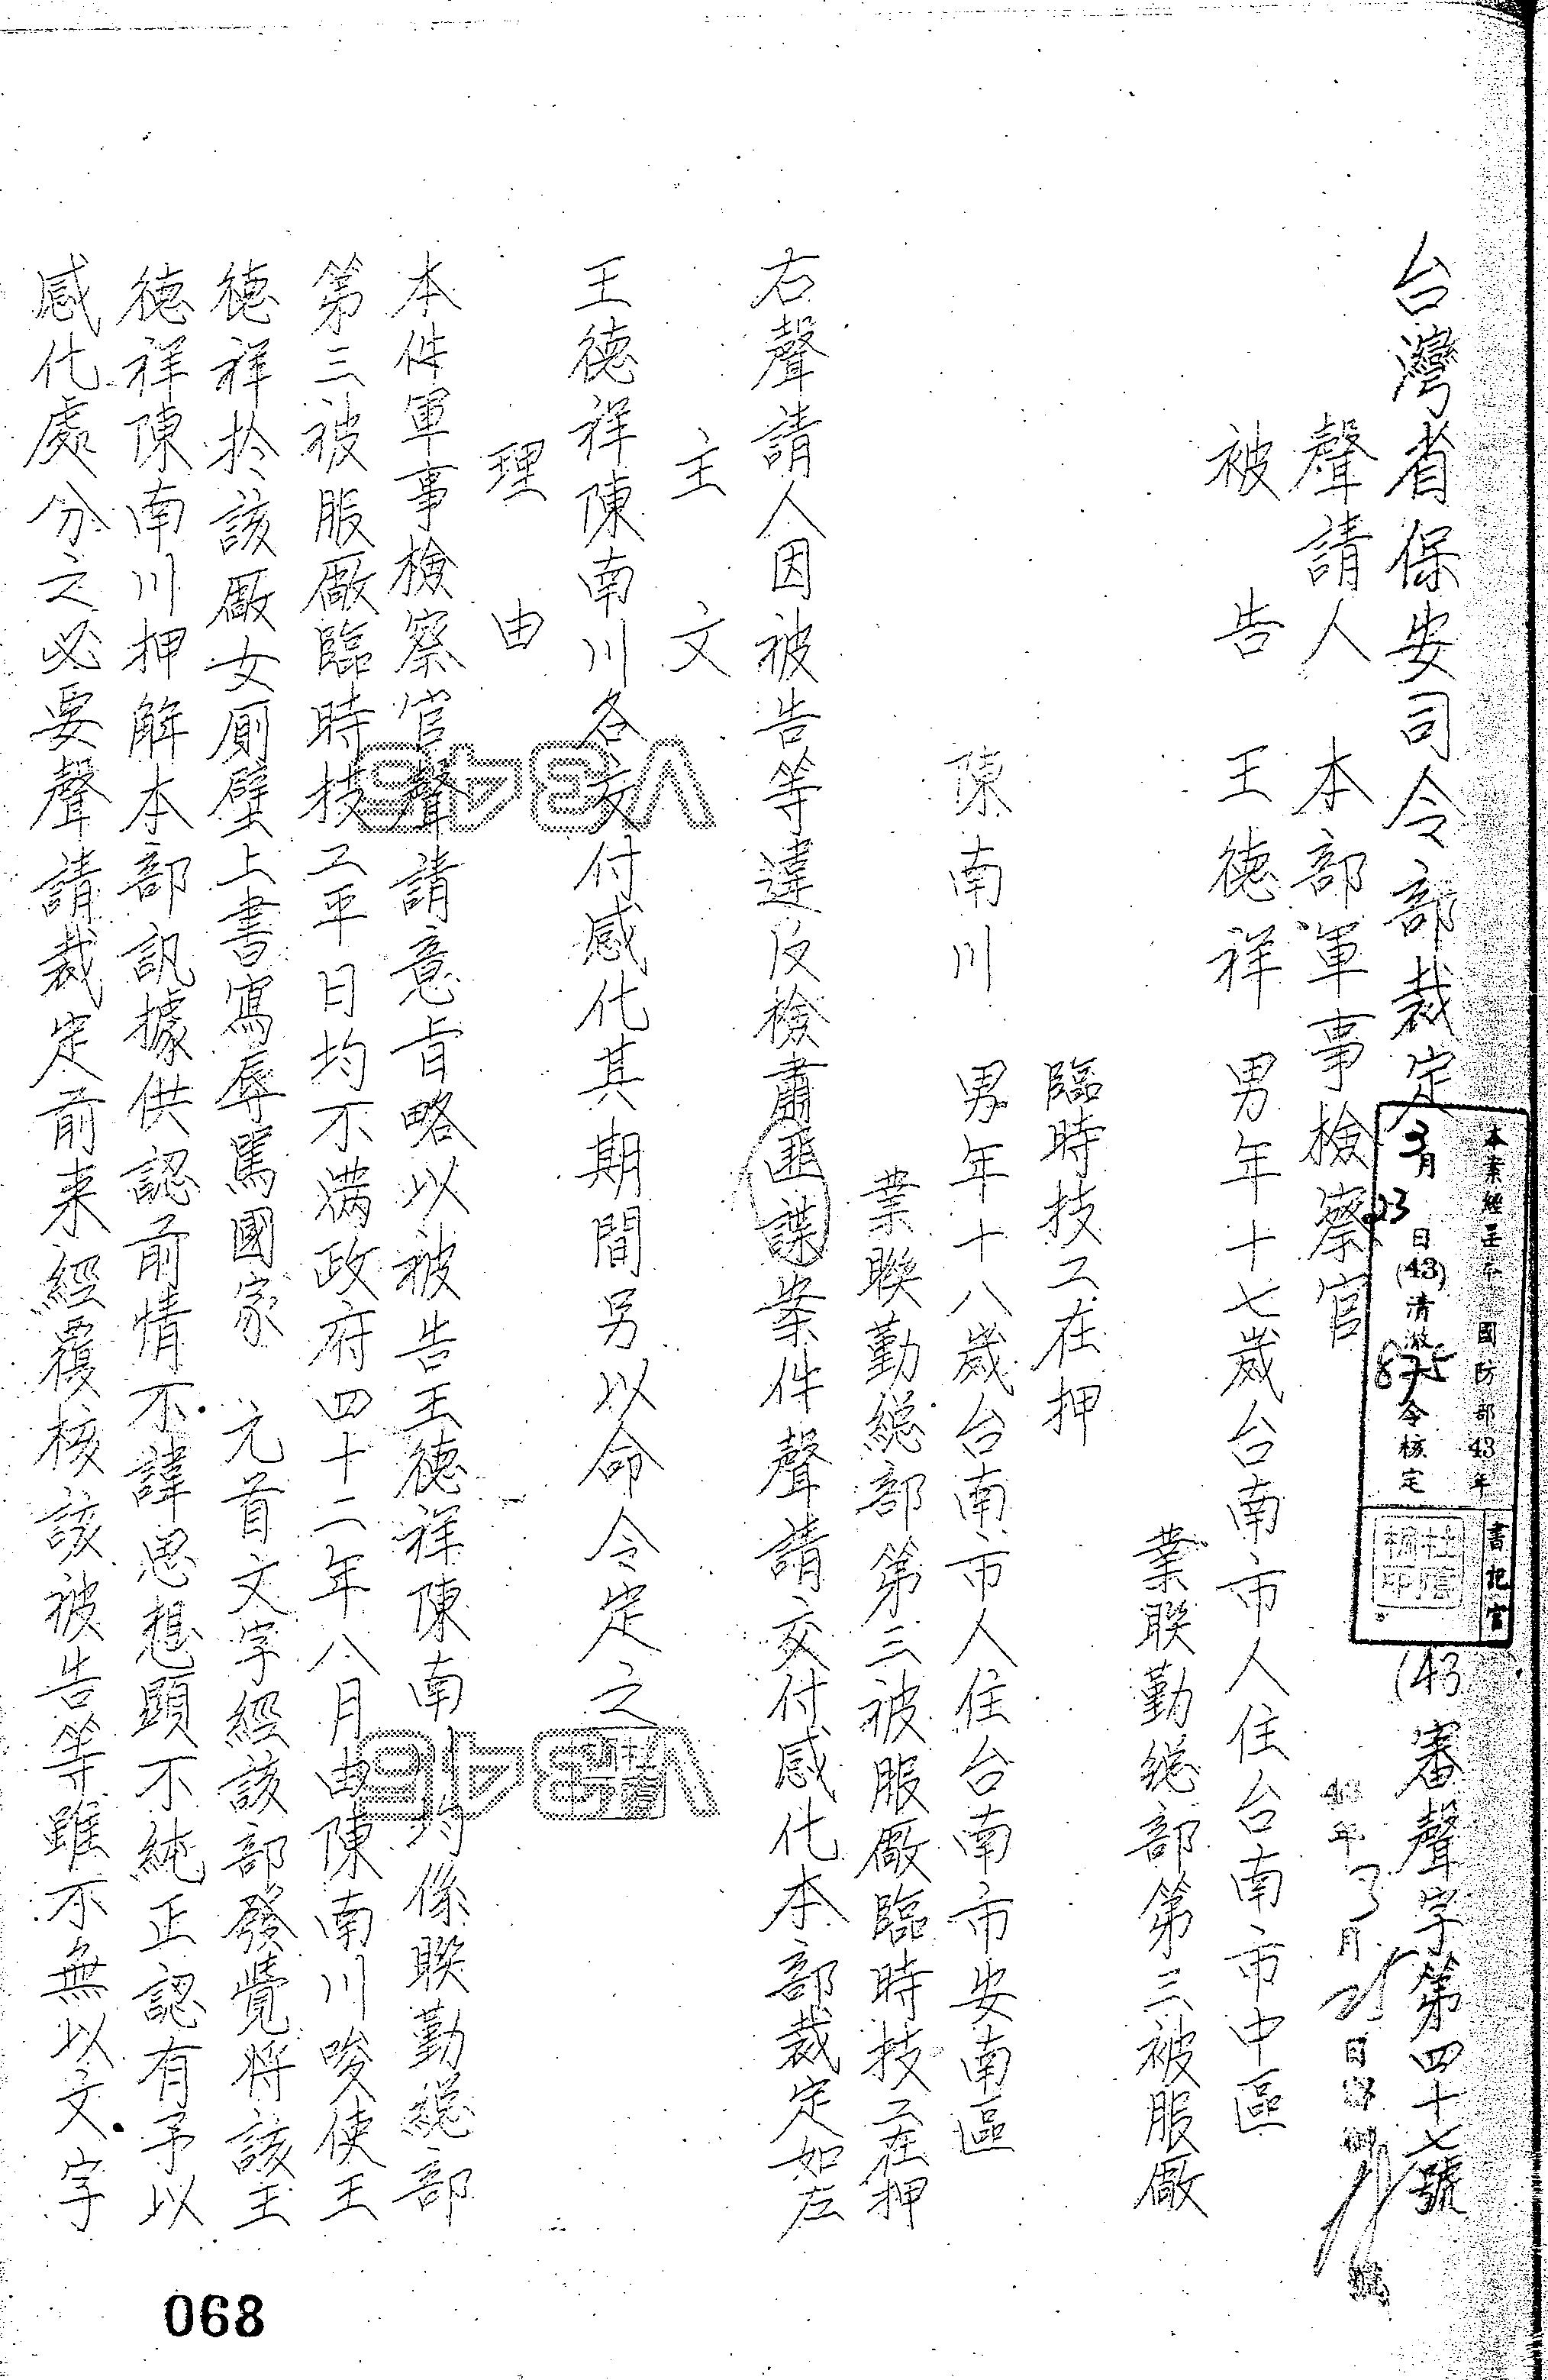 台灣省保安司令部裁定
(43審聲字第四十七號
本案經呈奉國防部43年
3月23日(43)清澈875令核定
書記官
聲請人　本部軍事檢察官
43年3月25日
被告　王德祥　男年十七歲台南市人住台南市中區
業聯勤總部第三被服廠
臨時技工在押
陳南川　男年十八歲台南市人住台南市安南區
業聯勤總部第三被服廠臨時技工在押
右聲請人因被告等違反檢肅匪諜案件聲請交付感化本部裁定如左
主文
王德祥陳南川各交付感化其期間另以命令定之
理由
本件軍事檢察官聲請意旨略以被告王德祥陳南川均係聯勤總部
第三被服廠臨時技工平日均不滿政府四十二年八月由陳南川唆使王
德祥於該廠女廁壁上書寫辱罵國家　元首文字經該部發覺將該王
德祥陳南川押解本部訊據供認前情不諱思想顯不純正認有予以
感化處分之必要聲請裁定前來經覆核該被告等雖不無以文字
V345
V345
068